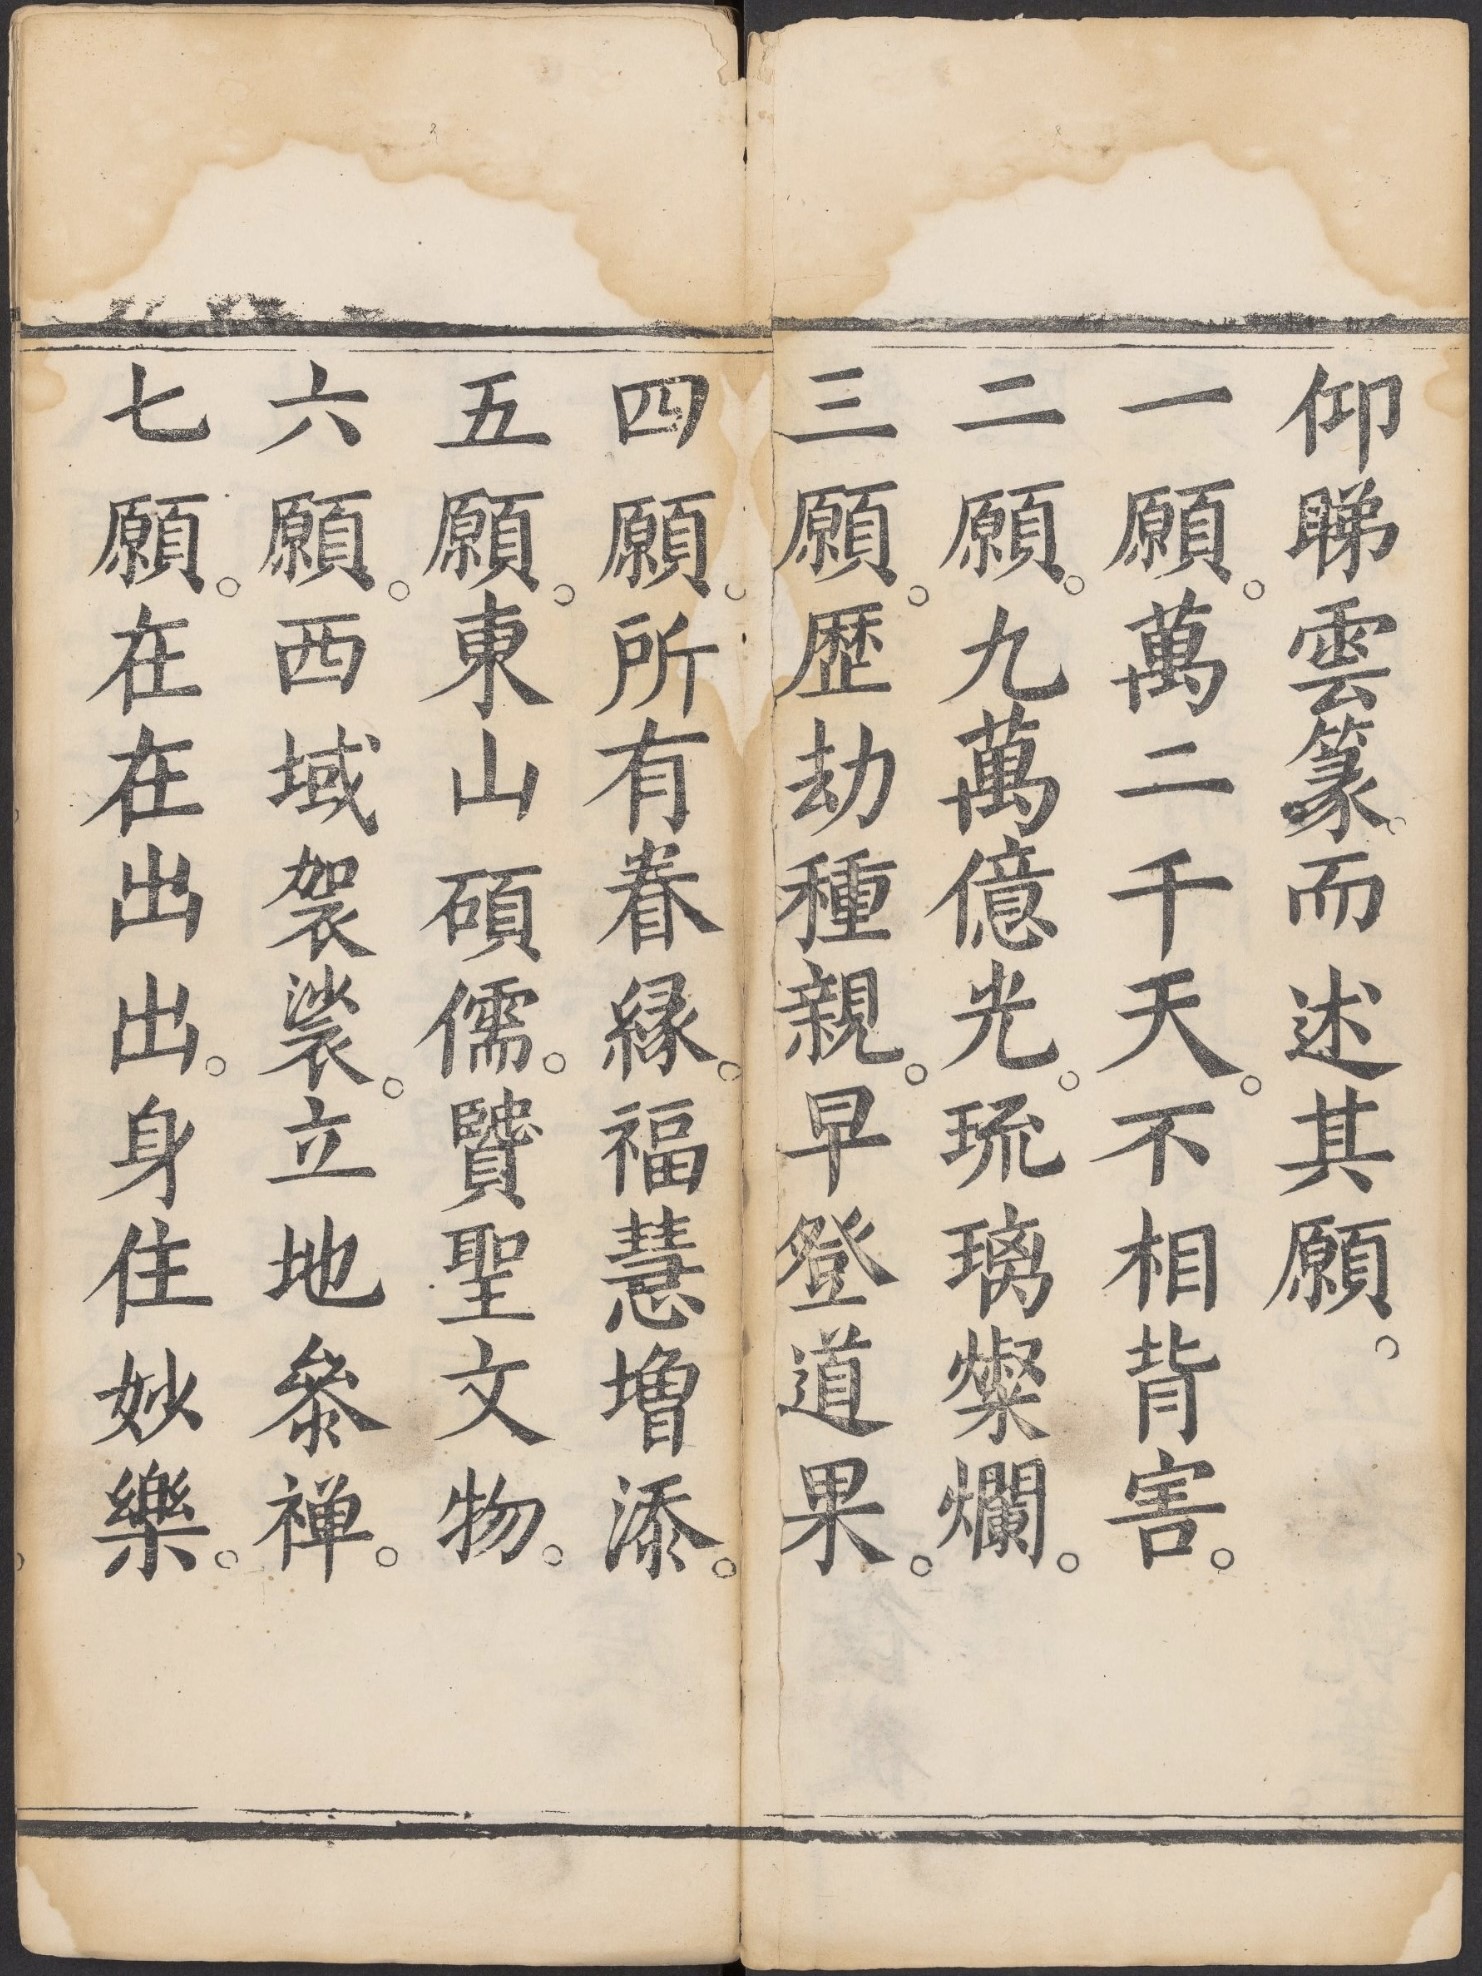 仰睇雲篆。而述其願。
一願。萬二千天。不相背害。
二願。九萬億光。琉璃燦爛。
三願。歷劫種親。早登道果。
四願。所有眷緣。福慧增添。
五願。東山碩儒。贒聖文物。
六願。西域袈裟。立地叅禅。
七願。在在出出。身住妙樂。